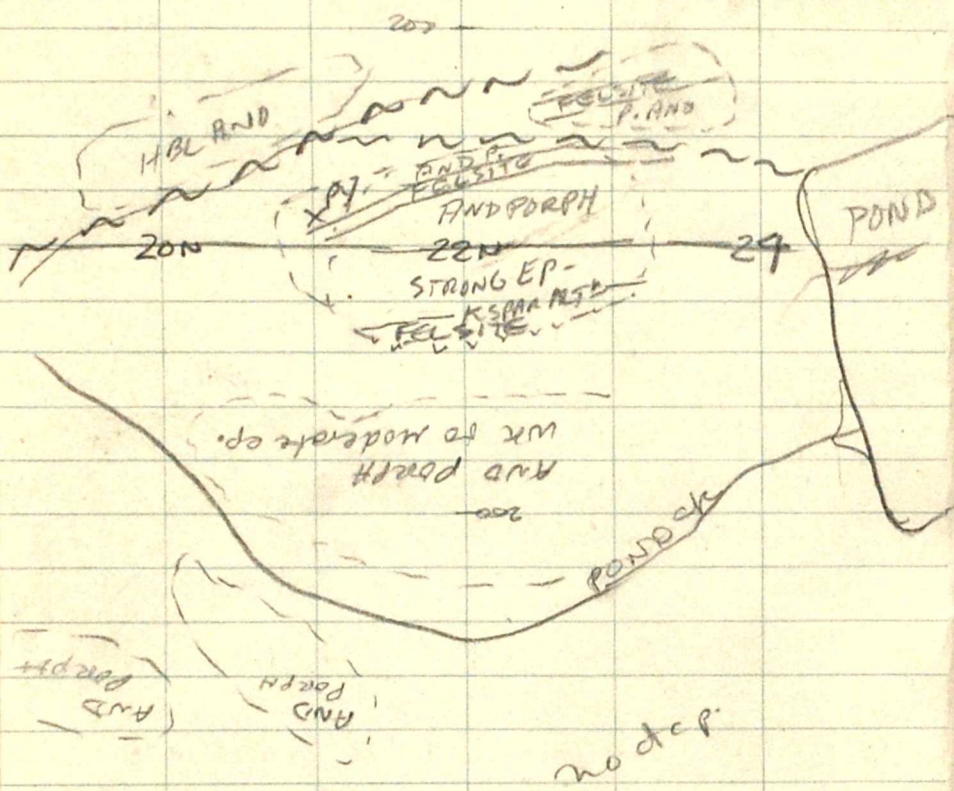 200
FELSITE
P. AND
HBL AND
AND P.
FELSITE
py
AND PORPH
POND
20N
22N
24
STRONG EP-
KSPAR ALTN
FELSITE
AND PORPH
WK to moderate ep.
200
POND CK
AND
PORPH
AND
PORPH
mod ep.